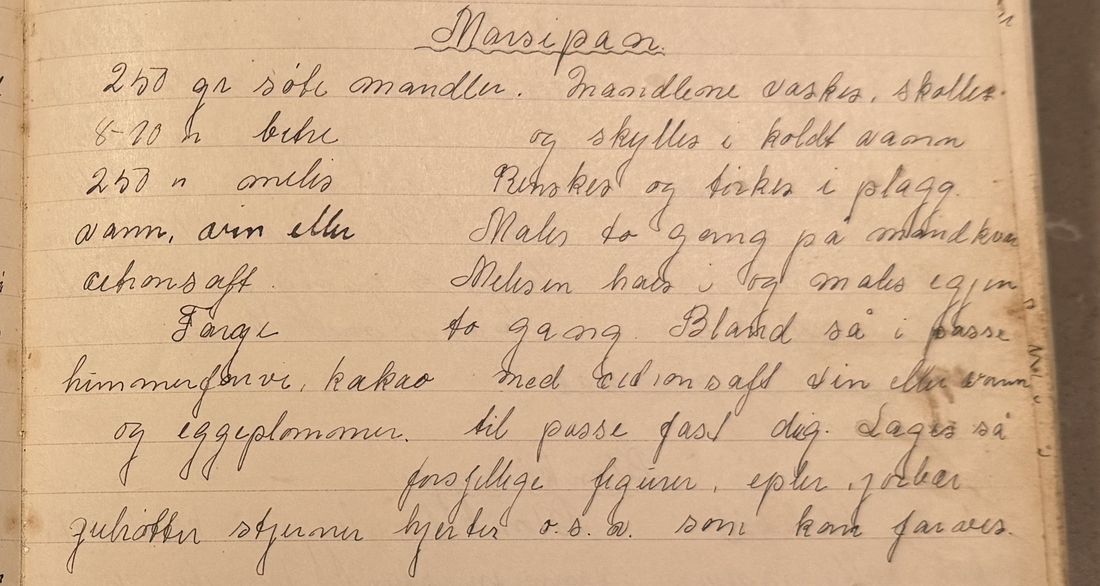 Marsipan.
250 gr søte mandler. Mandlene vaskes, skolles
8-10 " betre og skylles i koldt vann
250 " melis Renskes og tørkes i plagg.
vann, vin eller Males to gang på mandkvar
citronsaft. Melisen haes i og males igjen
Farge to gang. Bland så i passe
himmerfarve, kakao med citronsaft vin eller vann
og eggeplommer. til passe fast dig. Lages så
forsjellige figurer, epler, jorbær
gulrøtter stjerner hjerter o.s.v. som kan farves.